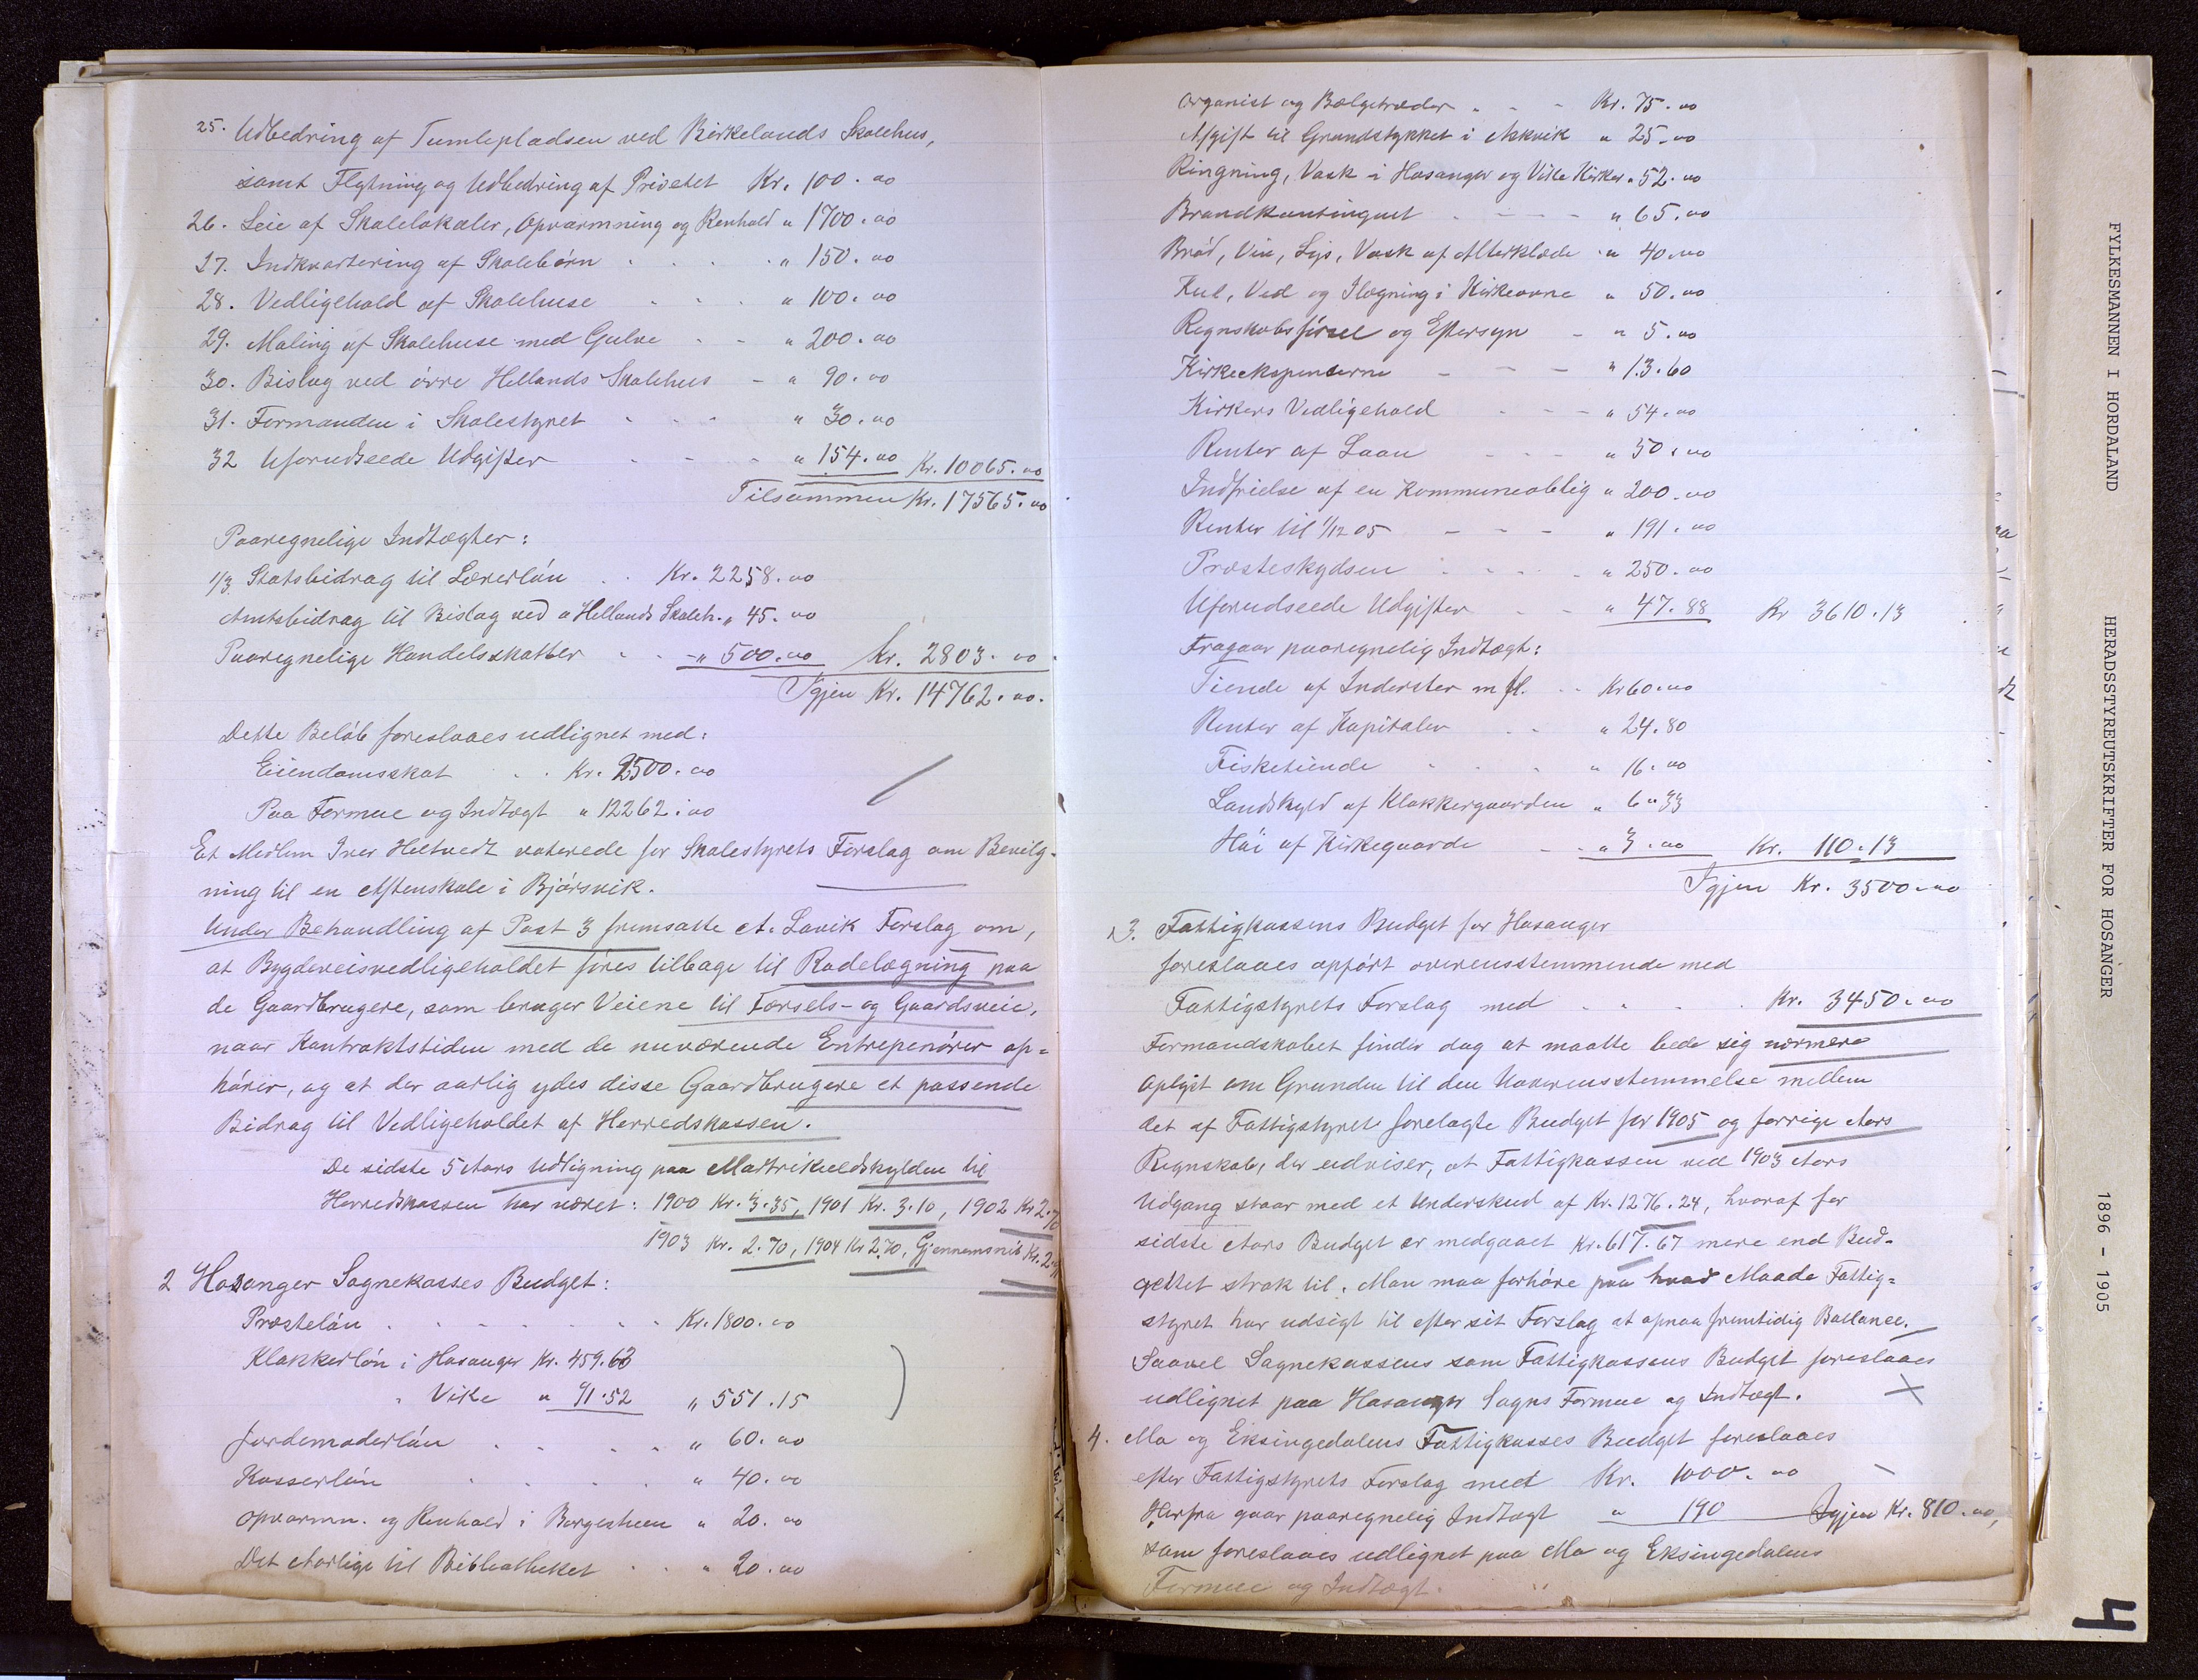 25. Udbedring af Tumlepladsen ved Birkelands Skolehus,
samt Flytning og Udbedring af Privetet Kr. 100.00
26. Leie af Skolelokaler, Opvarmning og Renhold " 1700.00
27. Indkvartering af Skolebørn " 150.00
28. Vedligehold af Skolehuse " 100.00
29. Maling af Skolehuse med Gulve " 200.00
30. Bislag ved övre Hellands Skolehus " 90.00
31. Formanden i Skolestyret " 30.00
32 Uforudseede Udgifter " 154.00 Kr. 10065.00
Tilsammen Kr. 17565.00
Paaregnelige Indtægter:
1/3 Statsbidrag til Lærerlön Kr. 2258.00
Amtsbidrag til Bislag ved ö Hellands Skoleh. " 45.00
Paaregnelige Handelsskatter " 500.00 Kr. 2803.00
Igjen Kr. 14762.00.
Dette Belöb foreslaaes udlignet med:
Eiendomsskat Kr. 2500.00
Paa Formue og Indtægt " 12262.00
Et Medlem Iver Heltvedt voterede for Skolestyrets Forslag om Bevilg-
ning til en Aftenskole i Bjórsvik.
Under Behandling af Post 3 fremsatte A. Lavik Forslag om,
at Bygdeveisvedligeholdet föres tilbage til Rodelægning paa
de Gaardbrugere, som bruger Veiene til Færsels- og Gaardsveie,
naar Kontraktstiden med de nuværende Entrepenörer op=
hörer, og at der aarlig ydes disse Gaardbrugere et passende
Bidrag til Vedligeholdet af Herredskassen.
De sidste 5 Aars Udligning paa Matrikulskylden til
Herredskassen har været: 1900 Kr. 3.35, 1901 Kr. 3.10, 1902 Kr 2.70
1903 Kr. 2.70, 1904 Kr 2.70, Gjennemsnit Kr. 2.91
2 Hosanger Sognekasses Budget:
Prestelön Kr. 1800.00
Klokkerlön i Hosanger Kr. 459.63
" Vike " 91.52 " 551.15
Jordemoderlön " 60.00
Kasserlön " 40.00
Opvarmn. og Renhold i Borgestuen " 20.00
Det Aarlige til Bibliotheket " 20.00
Organist og Bælgetræder Kr. 75.00
Afgift til Grundstykket i Askvik " 25.00
Ringning, Vask i Hosanger og Vike Kirker " 52.00
Brandkontingent " 65.00
Bröd, Vin, Lys, Vask af Alterklæde " 40.00
Kul, Ved og Ilægning i Kirkeovne " 50.00
Regnskabsförsel og Eftersyn " 5.00
Kirkeekspenserne " 13.60
Kirkers Vedligehold " 54.00
Renter af Laan " 50.00
Indfrielse af en Kommuneoblig " 200.00
Renter til 1/12 05 " 191.00
Præsteskydsen " 250.00
Uforudseede Udgifter " 47.88 Kr 3610.13
Fragaar paaregnelig Indtægt:
Tiende af Inderster m fl. Kr 60.00
Renter af Kapitaler " 24.80
Fisketiende " 16.00
Landskyld af Klokkergaarden " 6.33
Höi af Kirkegaarde " 3.00 Kr. 110.13
Igjen Kr. 3500.00
3. Fattigkassens Budget for Hosanger
foreslaaes opfört overensstemmende med
Fattigstyrets Forslag med Kr. 3450.00
Formandskabet finder dog at maatte bede sig nærmere
oplyst om Grunden til den Uoverensstemmelse mellem
det af Fattigstyret forelagte Budget for 1905 og forrige Aars
Regnskab, der udviser, at Fattigkassen ved 1903 Aars
Udgang staar med et Underskud af Kr. 1276.24, hvoraf for
sidste Aars Budget er medgaaet Kr. 617.67 mere end Bud-
gettet strak til. Man maa forhöre paa hvad Maade Fattig=
styret har udsigt til efter sit Forslag at opnaa fremtidig Ballance.
Saavel Sognekassens som Fattigkassens Budget foreslaaes
udlignet paa Hosanger Sogns Formue og Indtægt.
4. Mo og Eksingedalens Fattigkasses Budget foreslaaes
efter Fattigstyrets Forslag med Kr. 1000.00
Herfra gaar paaregnelig Indtægt " 190 Igjen Kr. 810.00,
som foreslaaes udlignet paa Mo og Eksingedalens
Formue og Indtægt.
FYLKESMANNEN I HORDALAND
HERADSSTYREUTSKRIFTER FOR HOSANGER
1896 - 1905
4